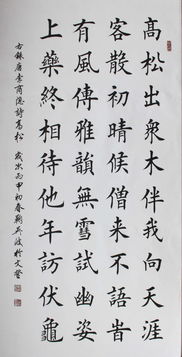 髙松出衆木伴我向天涯
客散初晴候僧來不語旹
有風傳雅韻無雪試幽姿
上藥終相待他年訪伏龜
右錄唐李商隱詩高松 歲次丙申初春 於文登